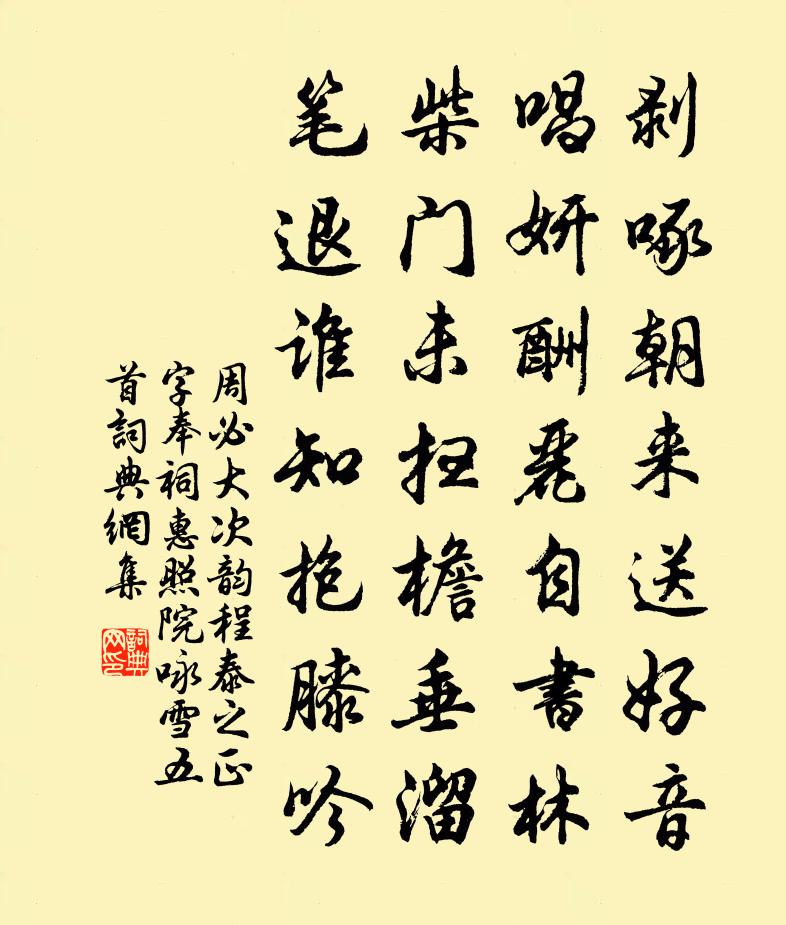 剥啄朝来送好音
唱妍酬丽自書林
柴门未扫檐垂溜
笔退谁知抱膝吟
周必大次韵程泰之正
字奉祠惠照院咏雪五
首詞典網集
詞典网印